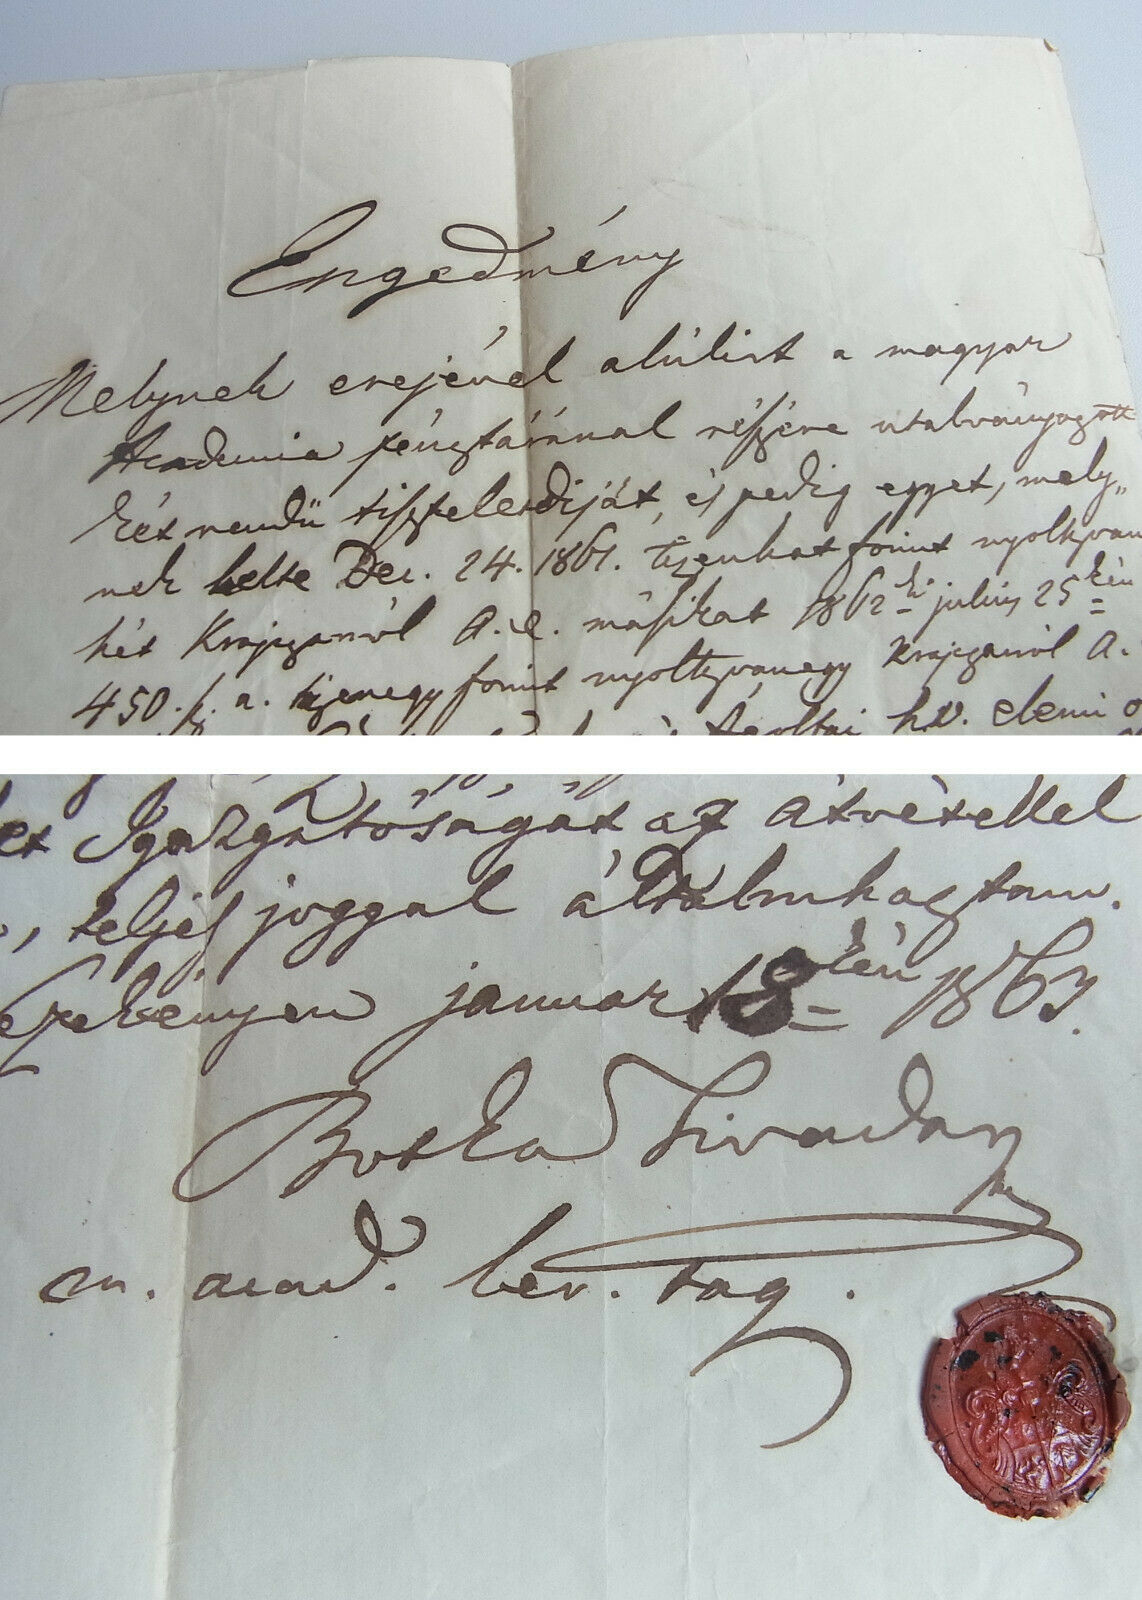 Engedmény
Melynek erejénél alúlirt a magyar
Academia pénztáránál részére utalványozott
két rendü tiszteletdiját, és pedig egyet, mely„
nek kelte Dec. 24. 1861. tizenhat forint nyoltzvan
hét Krajczárról A. é. másikat 1862ki július 25kén
450. sz. a. tizenegy forint nyoltzvanegy Krajczárról A.
hv. elemi
Igazgatóságát az átvétellel
, teljes joggal általruháztam.
január 18kán 1863.
Botka Tivadar
m. acad. lev. tag.